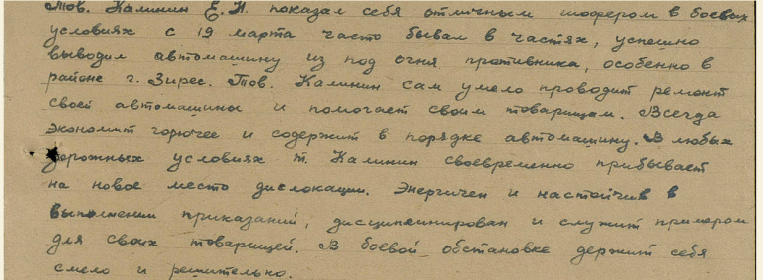 Тов. Калинин Е.И. показал себя отличным шофером в боевых
условиях с 19 марта часто бывал в частях, успешно
выводил автомашину из под огня противника, особенно в
районе г. Зирес. Тов. Калинин сам умело проводит ремонт
своей автомашины и помогает своим товарищам. Всегда
экономит горючее и содержит в порядке автомашину. В любых
дорожных условиях т. Калинин своевременно прибывает
на новое место дислокации. Энергичен и настойчив в
выполнении приказаний, дисциплинирован и служит примером
для своих товарищей. В боевой обстановке держит себя
смело и решительно.